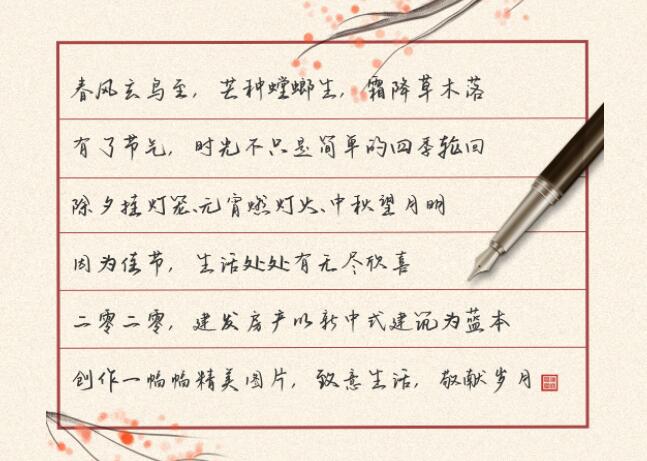 春风玄鸟至，芒种螳螂生，霜降草木落
有了节气，时光不只是简单的四季轮回
除夕挂灯笼、元宵燃灯火、中秋望月明
因为佳节，生活处处有无尽欣喜
二零二零，建发房产以新中式建筑为蓝本
创作一幅幅精美图片，致意生活，敬献岁月